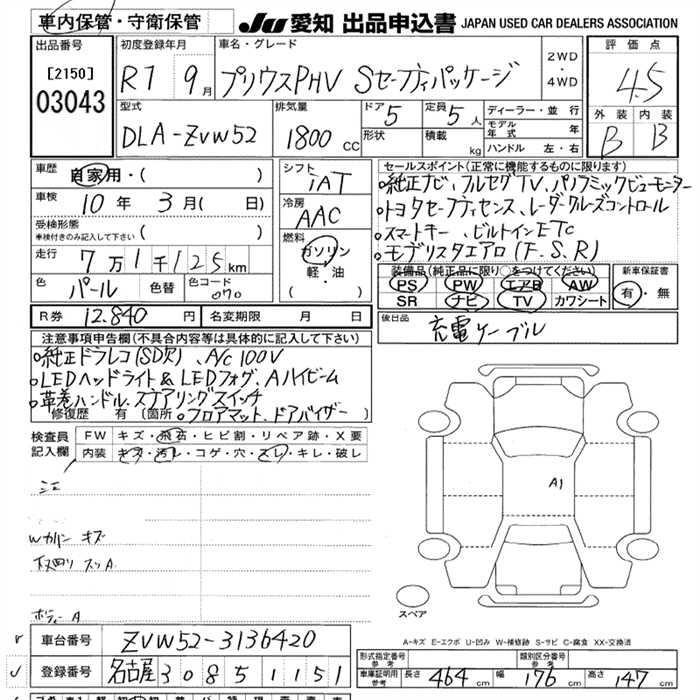 車内保管・守衛保管
JU 愛知 出品申込書 JAPAN USED CAR DEALERS ASSOCIATION
出品番号
[2150]
03043
初度登録年月
R1 9月
車名・グレード
プリウスPHV Sセーフティパッケージ
2WD・4WD
評価点
4.5
外装 内装
B B
型式
DLA-ZVW52
排気量
1800cc
ドア 5
形状
定員 5人
積載 kg
ディーラー・並行
モデル年式 年
ハンドル 左・右
車歴
自家用・( )
車検
10年 3月( 日)
受検形態
車検付きのみ記入して下さい ( )
走行
7万1千125km
色 パール 色替 色コード 070
シフト
iAT
冷房
AAC
燃料
ガソリン
軽・油
( )
セールスポイント(正常に機能するものに限ります)
○純正ナビ、フルセグTV、パノラミックビューモニター
○トヨタセーフティセンス、レーダークルーズコントロール
○スマートキー、ビルトインETC
○モデリスタエアロ(F.S.R)
装備品(純正品に限り○をつけてください)
PS PW エアB AW
SR ナビ TV カワシート
新車保証書
有・無
R券 12,840円 名変期限 月 日
後日品
充電ケーブル
注意事項申告欄(不具合内容等は具体的に記入して下さい)
○純正ドラレコ(SD欠)、A/C100V
○LEDヘッドライト&LEDフォグ、Aハイビーム
○革巻ハンドル、ステアリングスイッチ
修復歴 有 [箇所 ○フロアマット、ドアバイザー]
検査員記入欄
FW キズ・飛石・ヒビ割・リペア跡・X要
内装 キズ・汚レ・コゲ・穴・スレ・キレ・破レ
Wカバン キズ
ボディーA
A1
スペア
A-キズ E-エクボ U-凹み W-補修跡 S-サビ C-腐食 XX-交換済
車台番号 ZVW52-3136420
登録番号 名古屋 308 51151
形式指定番号 参考
類別区分番号 参考
車庫証明用 参考
長さ 464cm 幅 176cm 高さ 147cm